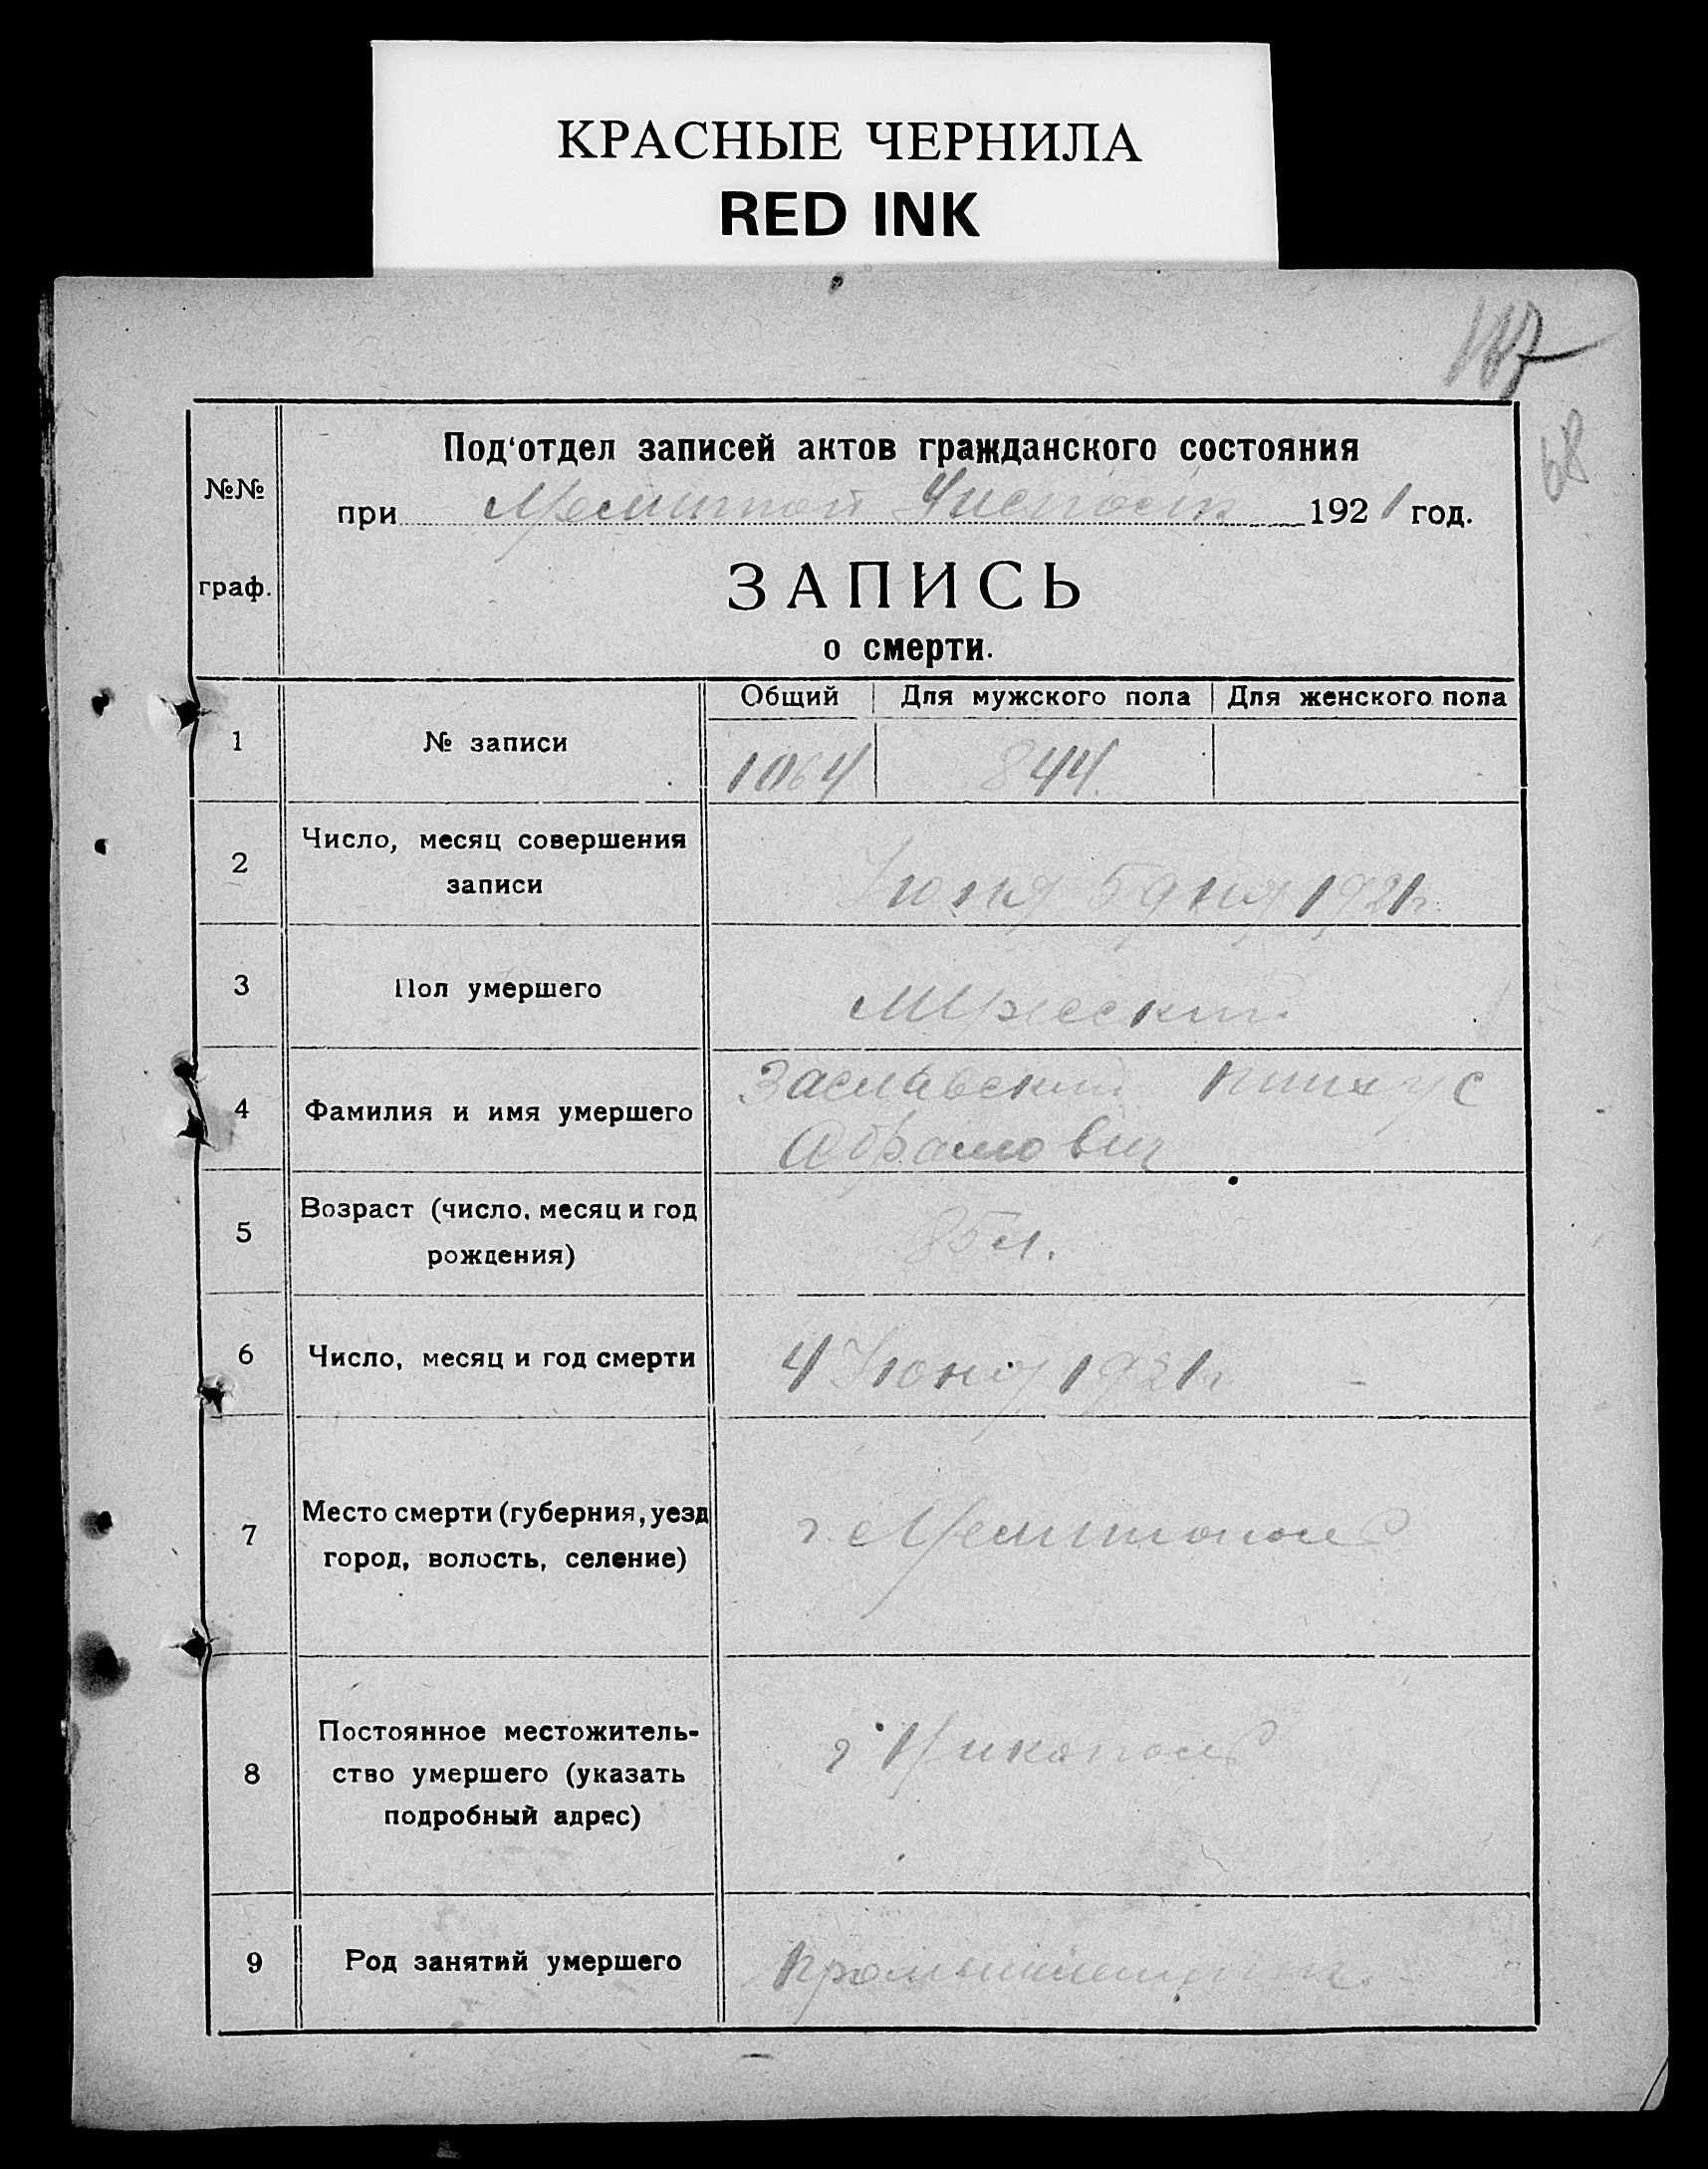 КРАСНЫЕ ЧЕРНИЛА
RED INK
187
68
Под‘отдел записей актов гражданского состояния
№№
при Мелитпол Уиспоlк 1921 год.
граф.
ЗАПИСЬ
о смерти.
Общий Для мужского пола Для женского пола
1 № записи 1064 844.
2 Число, месяц совершения
записи Июня 5 дня 1921г.
3 Пол умершего Мужеский
4 Фамилия и имя умершего Заславский Пинхус
Абрамович
5 Возраст (число, месяц и год
рождения) 85 л.
6 Число, месяц и год смерти 4 Июня 1921г.
7 Место смерти (губерния, уезд
город, волость, селение) г. Мелитополь
8 Постоянное местожитель-
ство умершего (указать
подробный адрес) г. Никополь
9 Род занятий умершего